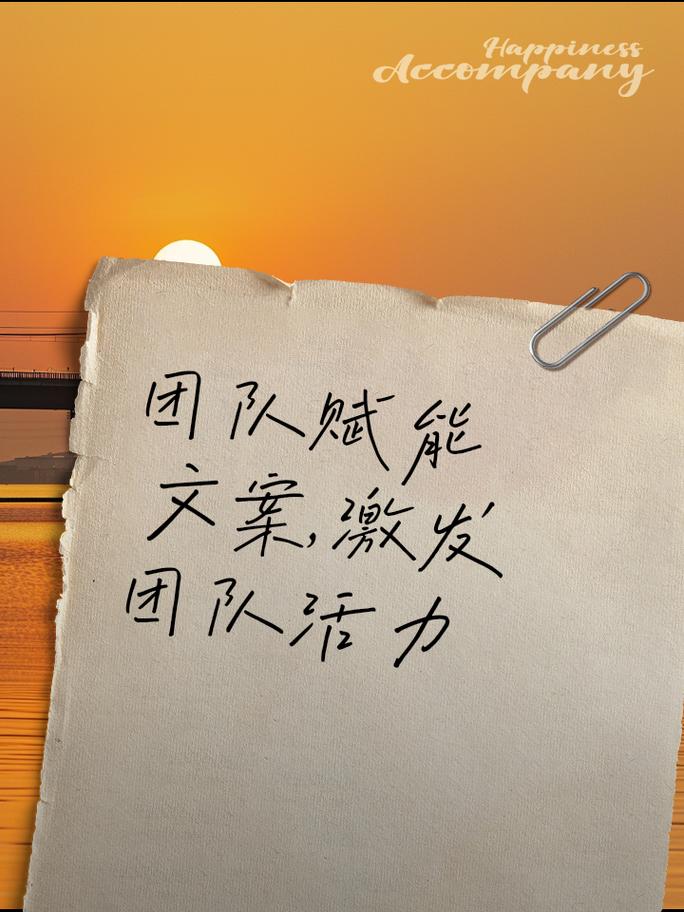 Happiness
Accompany
团队赋能
文案,激发
团队活力